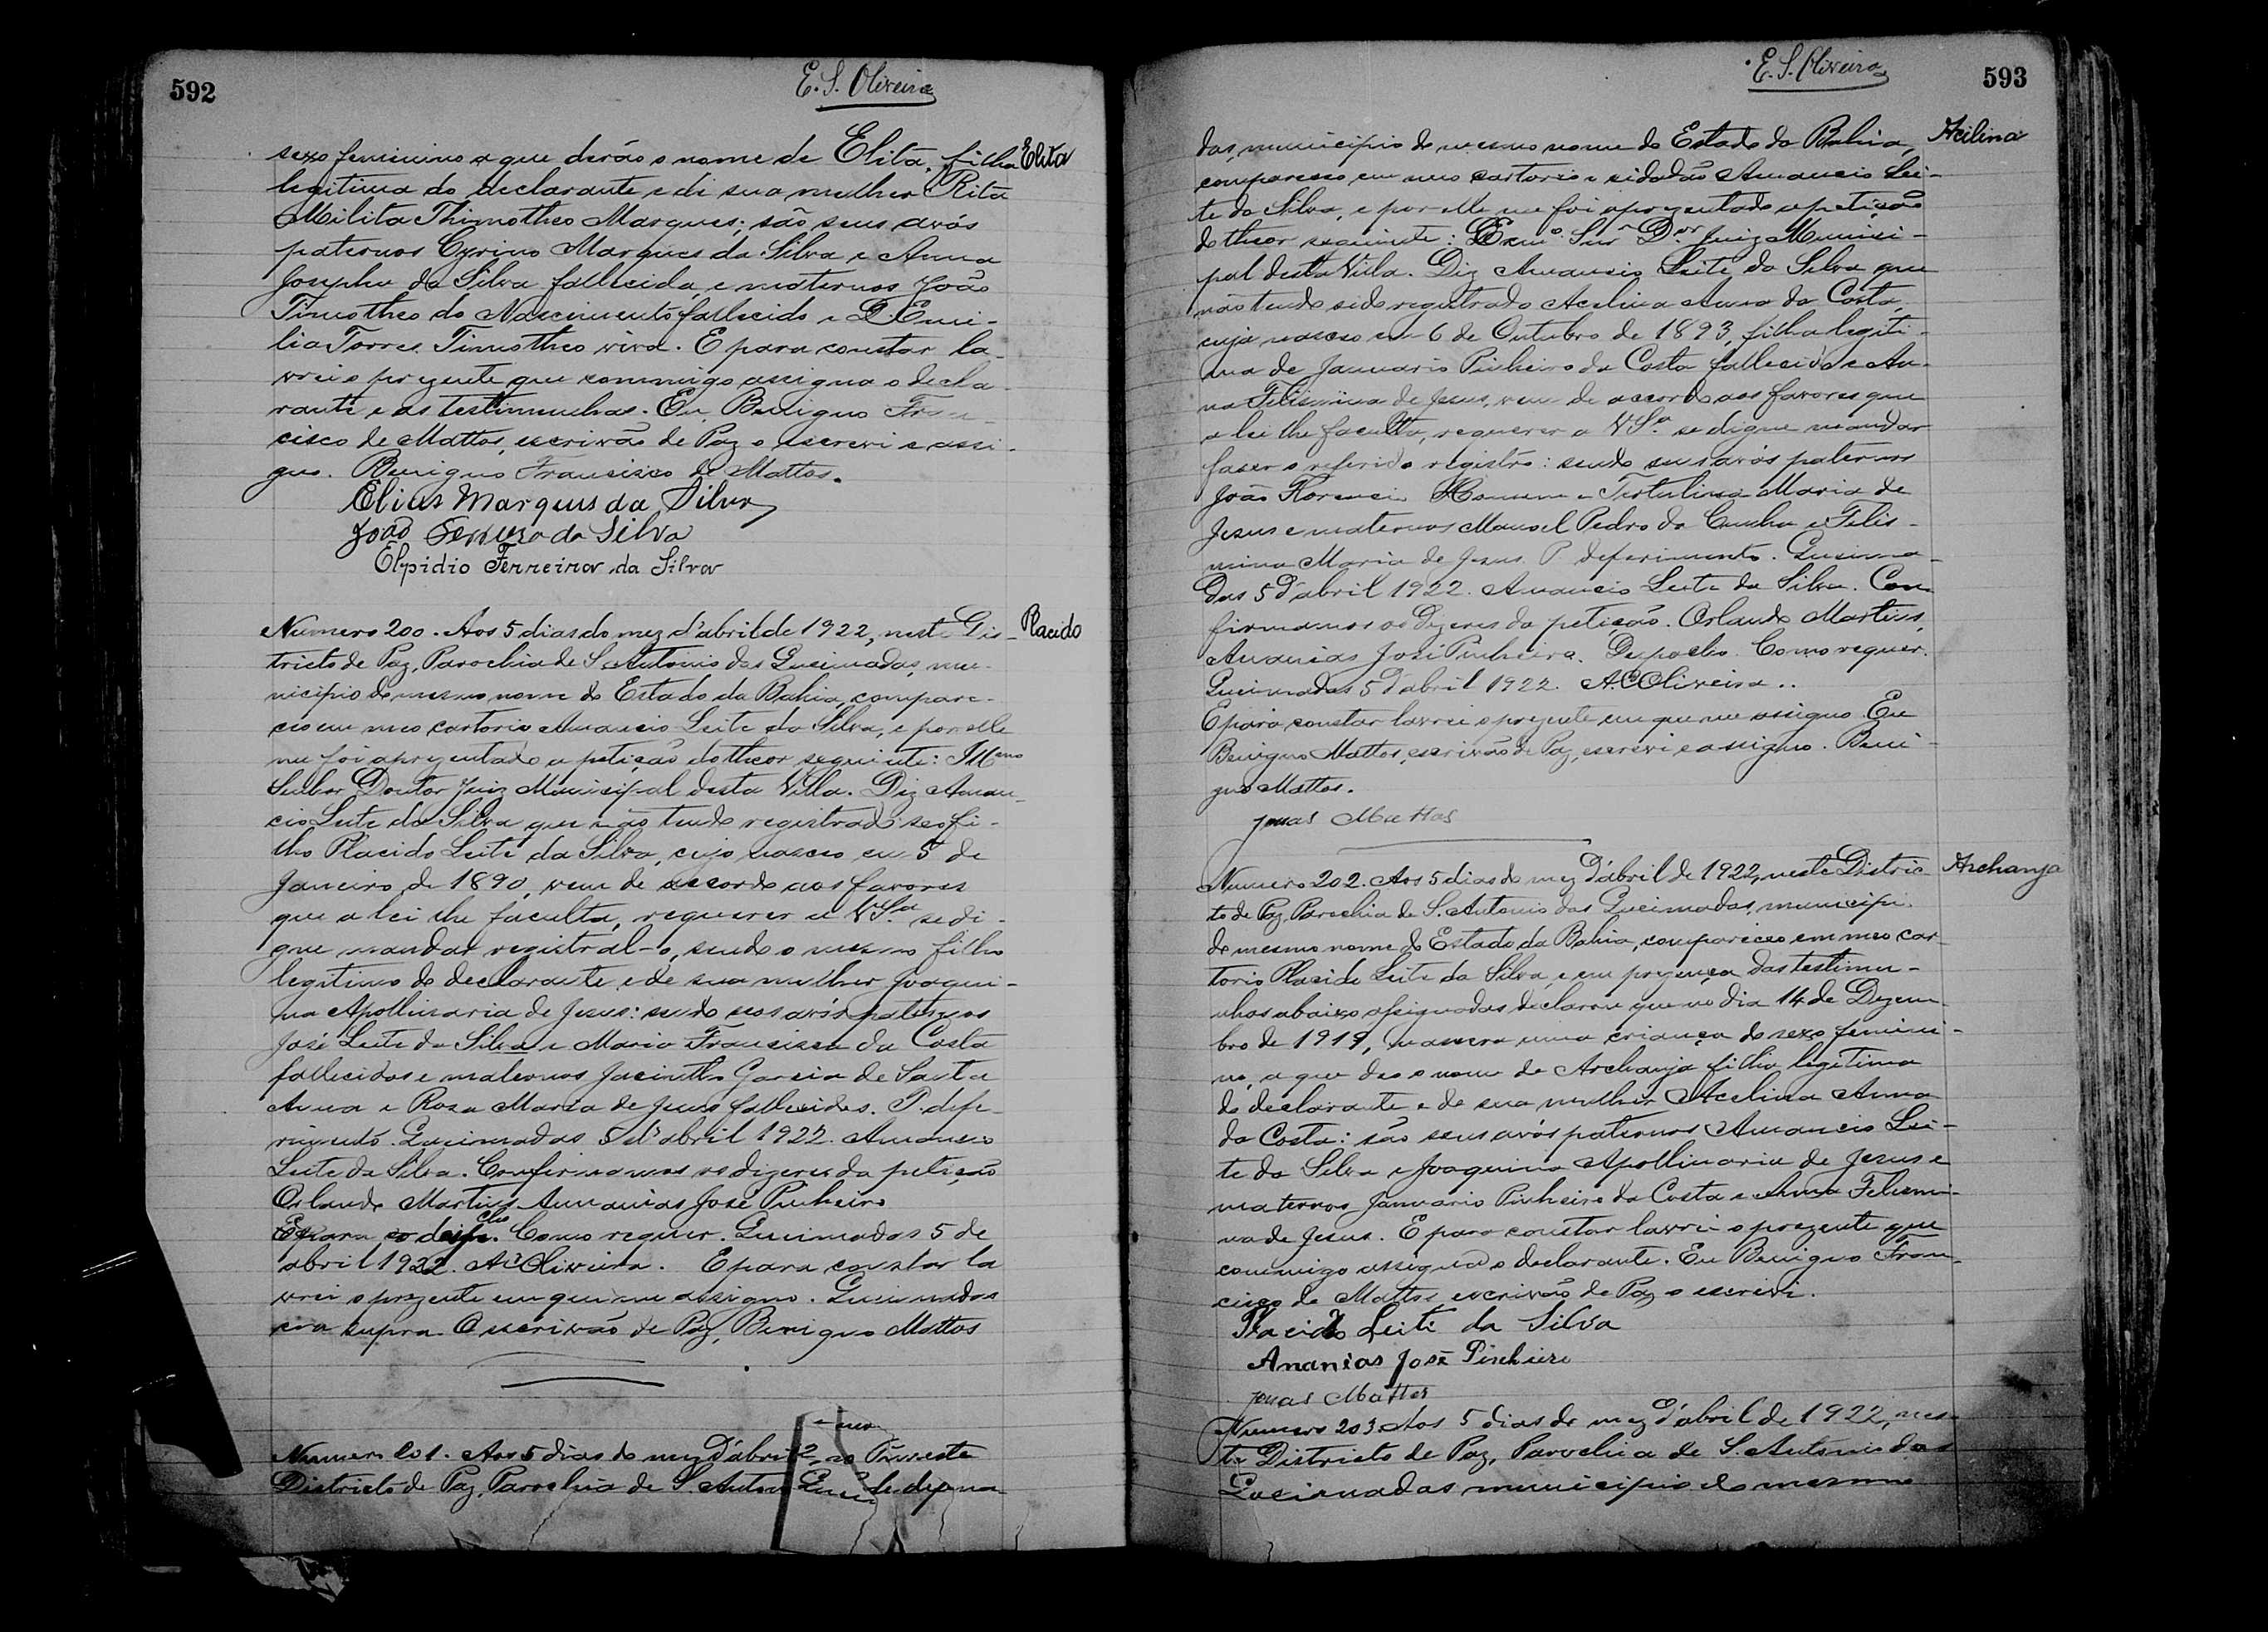 592
E. S. Oliveira
sexo feminino a que derão o nome de Elita, filha
Elita
legitima do declarante e di sua mulher Rita
Milita Thimotheo Marques; são seus avós
paternos Cyrino Marques da Silva e Anna
Josepha da Silva fallecida, e maternos João
Timotheo do Nascimento fallecido e D. Emi-
lia Torres Timotheo viva. E para constar la-
vrei o prezente que commigo assigna o decla-
rante e as testimunhas. Eu, Benigno Fran-
cisco de Mattos, escrivão de Paz o escrevi e assi-
gno. Benigno Francisco de Mattos.
Elias Marques da Silva
João da Silva
Elpidio Ferreira da Silva
Numero 200. Aos 5 dias do mez d'abril de 1922, neste Dis-
Placido
tricto de Paz, Parochia de S. Antonio das Queimadas, mu-
nicipio do mesmo nome do Estado da Bahia, compare-
ceo em meo cartorio Amancio Leite da Silva, e por elle
me foi aprezentado a petição do theor seguinte: Illmo
Senhor Doutor Juiz Municipal desta Villa. Diz Aman-
cio Leite da Silva que não tendo registrado seo fi-
lho Placido Leite da Silva, cujo nasceo em 5 de
Janeiro de 1890, vem de accordo aos favores
que a lei lhe faculta, requerer a V.S.ª se di-
gne mandar registral-o, sendo o mesmo filho
legitimo do declarante e de sua mulher Joaqui-
na Apollinaria de Jesus: sendo seos avós paternos
José Leite da Silva e Maria Francisca da Costa
fallecidos e maternos Jacintho Garcia de Santa
Anna e Rosa Maria de Jesus fallecidos. P. defe-
rimento. Queimadas 5 d'abril 1922. Amancio
Leite da Silva. Confirmamos os dizeres da petição
Orlando Martins Annanias José Pinheiro
Como requer. Queimadas 5 de
abril 1922. A. C. Oliveira. E para constar la
vrei o prezente em que me assigno. Queimadas
era supra. O escrivão de Paz, Benigno Mattos
Numero 201. Aos 5 dias do mez d'abril neste
Districto de Paz, Parochia de S. Antonio
E. S. Oliveira
593
das, municipio do mesmo nome do Estado da Bahia,
Acilina
compareceo em meo cartorio o cidadão Amancio Lei-
te da Silva, e por elle me foi aprezentado a petição
do theor seguinte: Exmº. Snr Dor Juiz Munici-
pal desta Villa. Diz Amancio Leite da Silva que
não tendo sido registrado Acelina Anna da Costa,
cuja nasceo em 6 de Outubro de 1893, filha legiti-
ma de Januario Pinheiro da Costa fallecido e An-
na Felismina de Jesus, vem de accordo aos favores que
a lei lhe faculta, requerer a V.S.ª se digne mandar
faser o referido registro: sendo seus avós paternos
João e Tertulina Maria de
Jesus e maternos Manoel Pedro da Cunha e Felis-
mina Maria de Jesus. P. deferimento. Queima-
das 5 d'abril 1922. Amancio Leite da Silva. Con-
firmamos os dizeres da petição. Orlando Martins,
Ananias José Pinheiro. Despacho. Como requer.
Queimadas 5 d'abril 1922. A. C. Oliveira..
E para constar lavrei o prezente em que me assigno. Eu
Benigno Mattos, escrivão de Paz, escrevi e assigno. Beni-
gno Mattos.
Jonas Mattos
Numero 202. Aos 5 dias do mez d'abril de 1922, neste Distric-
Archanja
to de Paz, Parochia de S. Antonio das Queimadas, municipio
do mesmo nome do Estado da Bahia, compareceo em meo car-
torio Placido Leite da Silva, e em prezença das testimu-
nhas abaixo assignadas declarou que no dia 14 de Dezem-
bro de 1919, nascera uma criança do sexo femini-
no, a que deo o nome de Archanja filha legitima
do declarante e de sua mulher Acelina Anna
da Costa: são seus avós paternos Amancio Lei-
te da Silva e Joaquina Apollinaria de Jesus e
maternos Januario Pinheiro da Costa e Anna Felismi-
na de Jesus. E para constar lavrei o prezente que
commigo assigna o declarante. Eu Benigno Fran-
cisco de Mattos escrivão de Paz o escrevi.
Placido Leite da Silva
Ananias José Pinheiro
Jonas Mattos
Numero 203. Aos 5 dias do mez d'abril de 1922, nes-
te Districto de Paz, Parochia de S. Antonio das
Queimadas municipio do mesmo